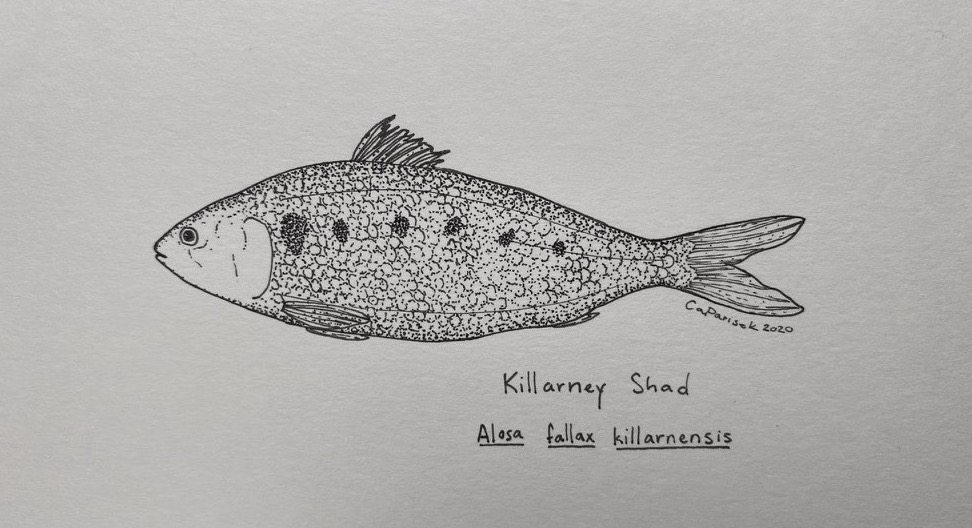 CaParisek 2020
Killarney Shad
Alosa fallax killarnensis